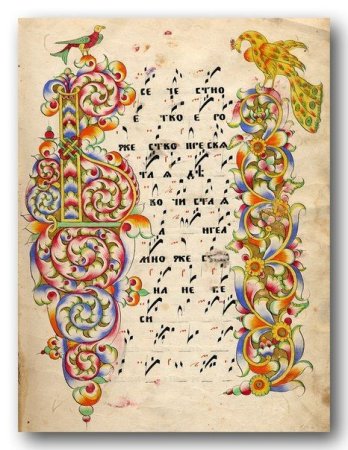 ВСЕ ЧЕ СТНО
Е ТВО Е РО
ЖЕ СТВО ПРЕСВѦ
ТА Ѧ ДѢ
ВО ЧИ СТА Ѧ
АНГЕЛ
МНО ЖЕ С
НА НЕ БЕ
СИ